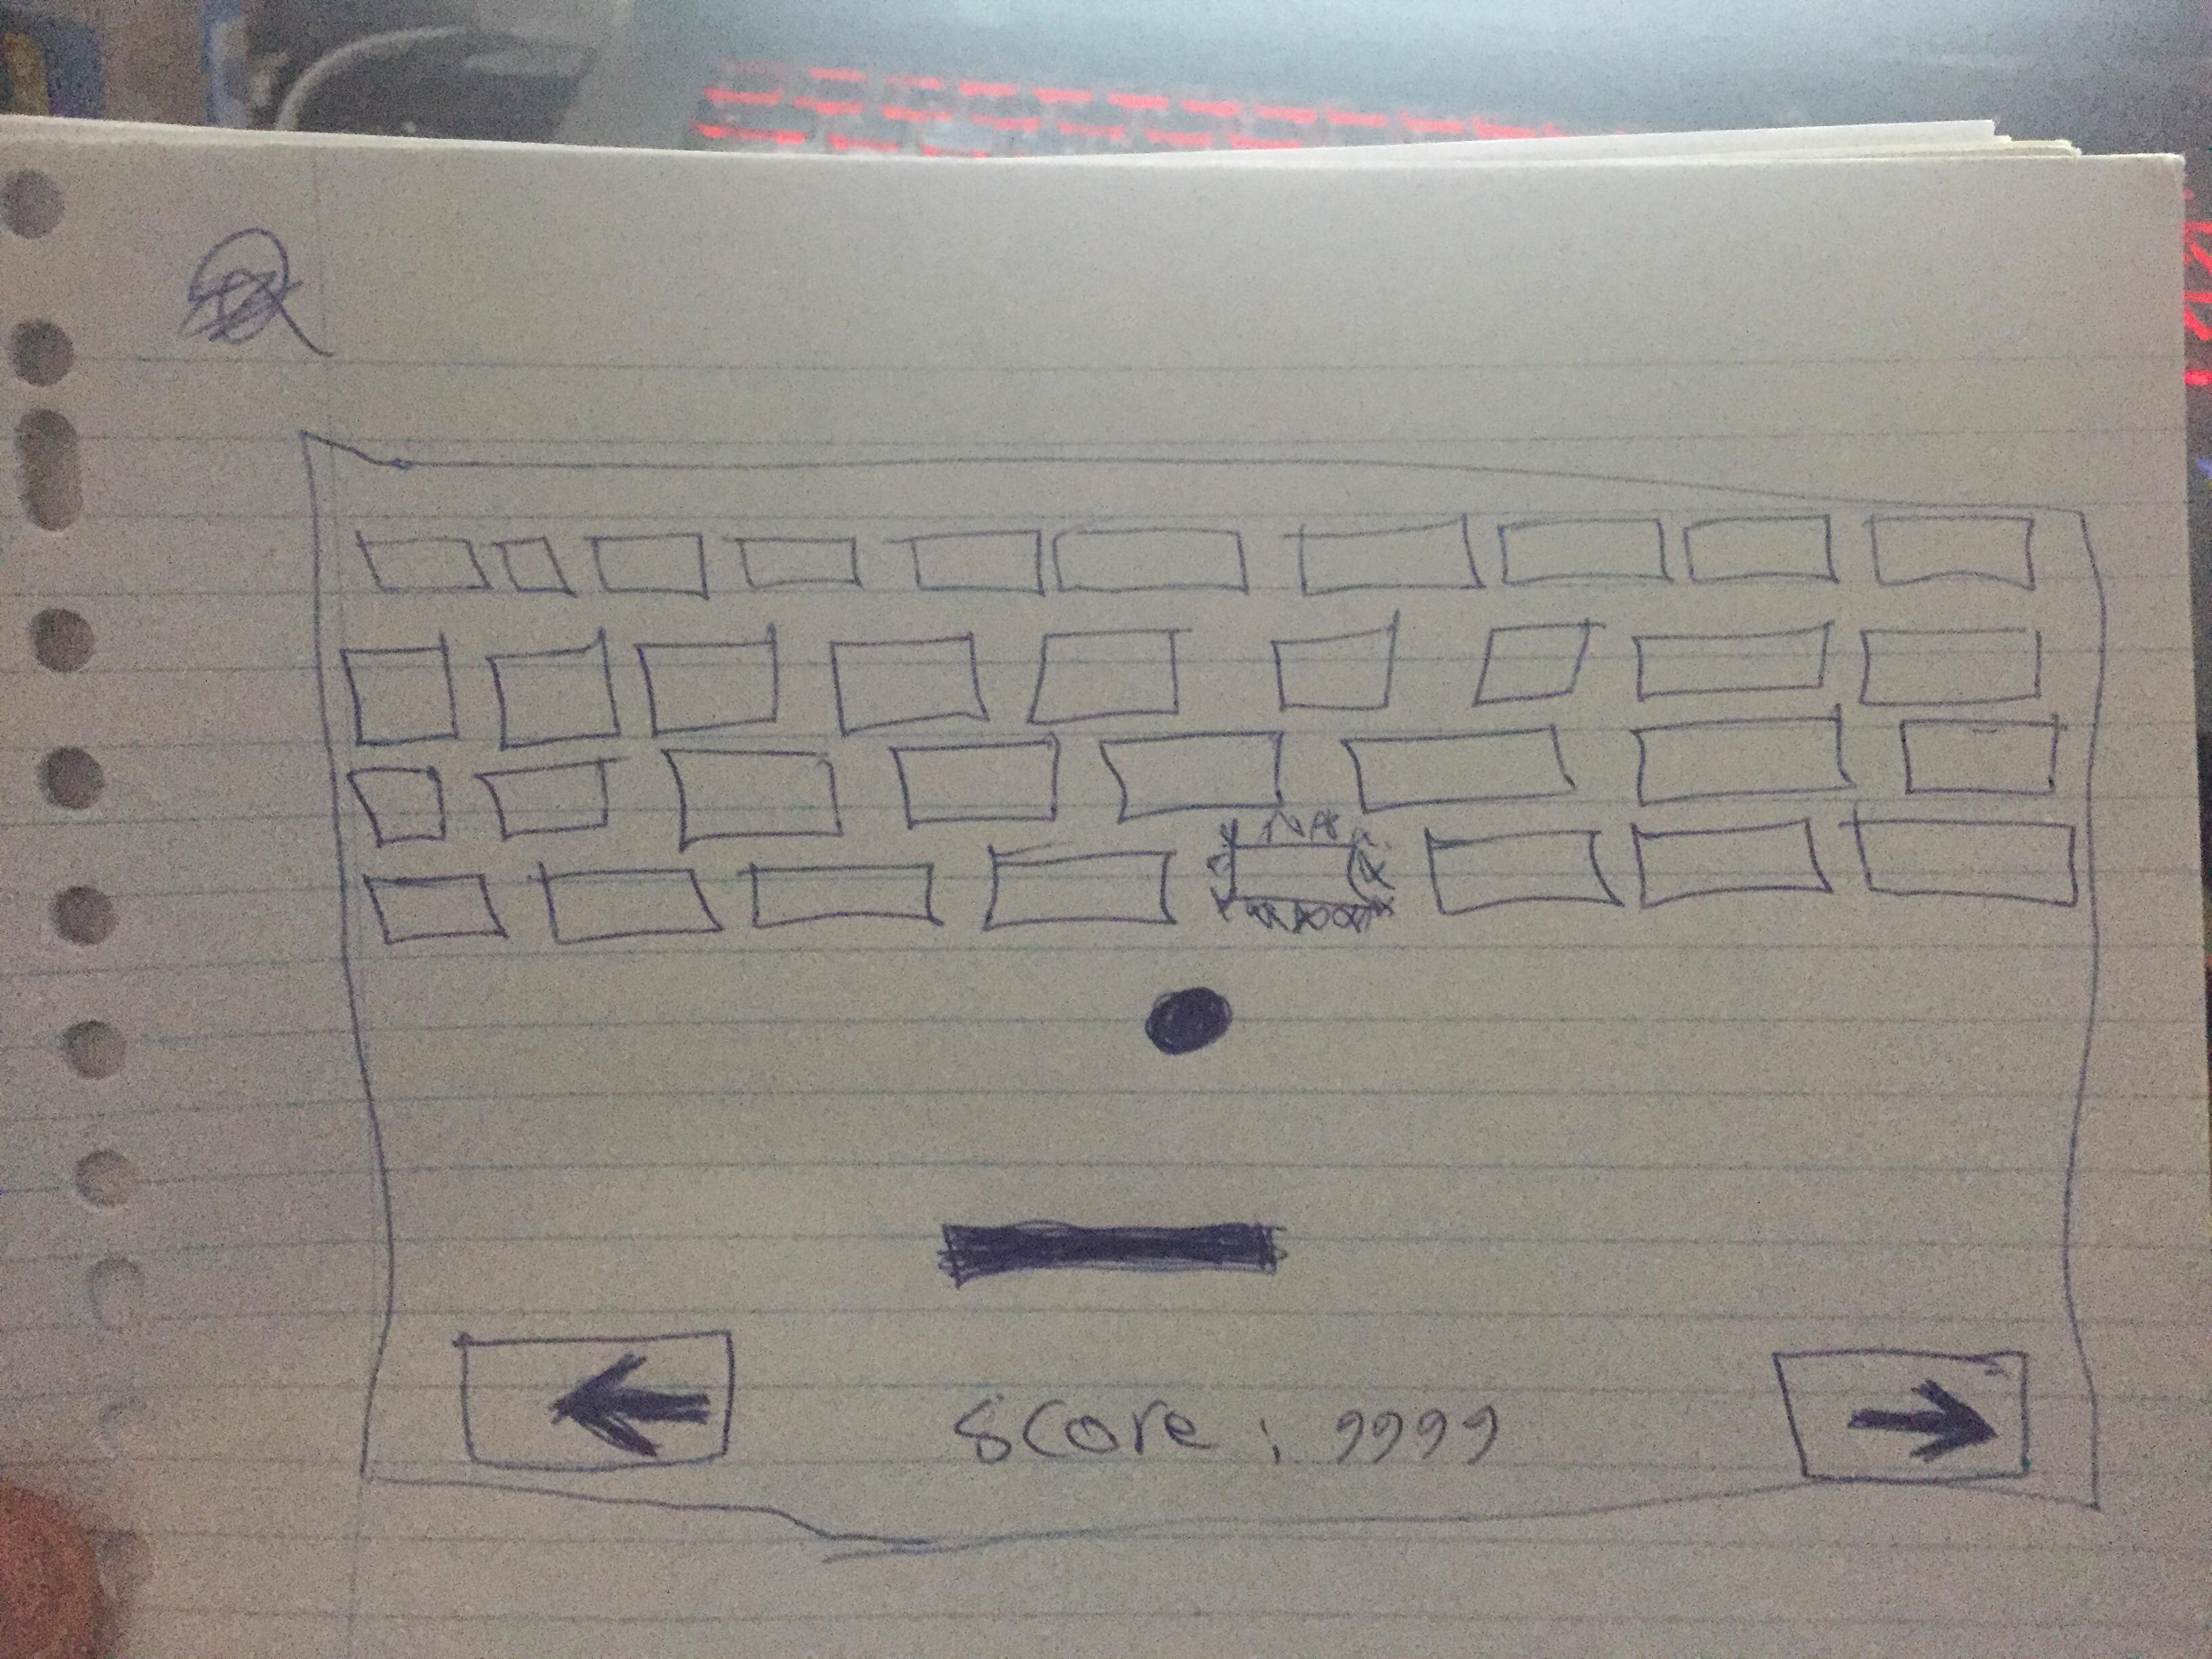 Score : 9999